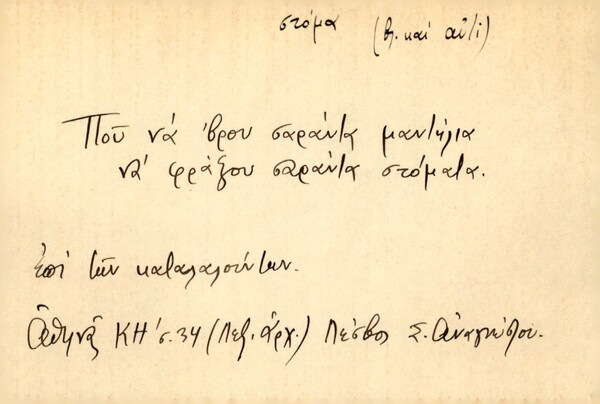 στόμα (βλ. καί αὐτί)
Ποῦ νά 'βρου σαράντα μαντήλια
νά φράξου σαράντα στόματα.
Ἐπί τῶν καταλαλούντων.
Ἀθηνᾶ ΚΗ' σ. 34 (Λεξ. Ἀρχ.) Λέσβος Σ. Ἀναγνώστου.